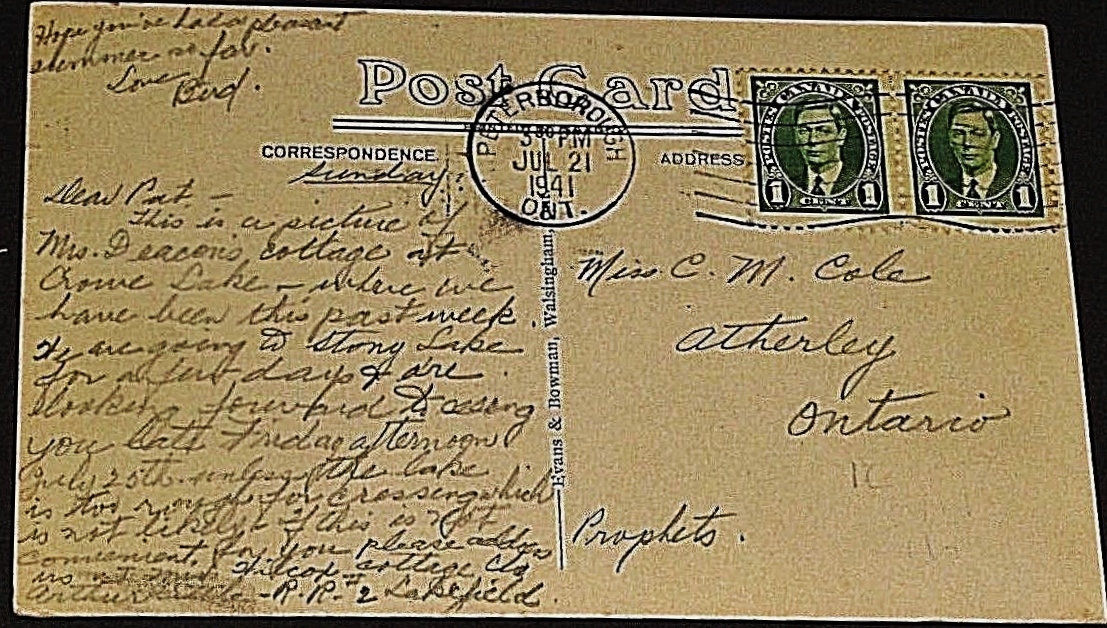 Hope you've had a pleasant
summer so far.
Love
Bird.
Post Card
CORRESPONDENCE
ADDRESS
PETERBOROUGH
3 30 PM
JUL 21
1941
ONT.
POSTES CANADA POSTAGE
1 CENT 1
POSTES CANADA POSTAGE
1 CENT 1
Sunday.
Dear Pat -
This is a picture of
Mrs. Deacon's cottage at
Crowe Lake - where we
have been this past week.
We are going to Stony Lake
for a few days & are
looking forward to seeing
you late Friday afternoon
July 25th unless the lake
is too rough for crossing which
is not likely - If this is not
convenient for you please address
us cottage c/o
Arthur - R.R. #2 Lakefield.
Evans & Bowman, Walsingham,
Miss C. M. Cole
Atherley
Ontario
1C
Prophets.